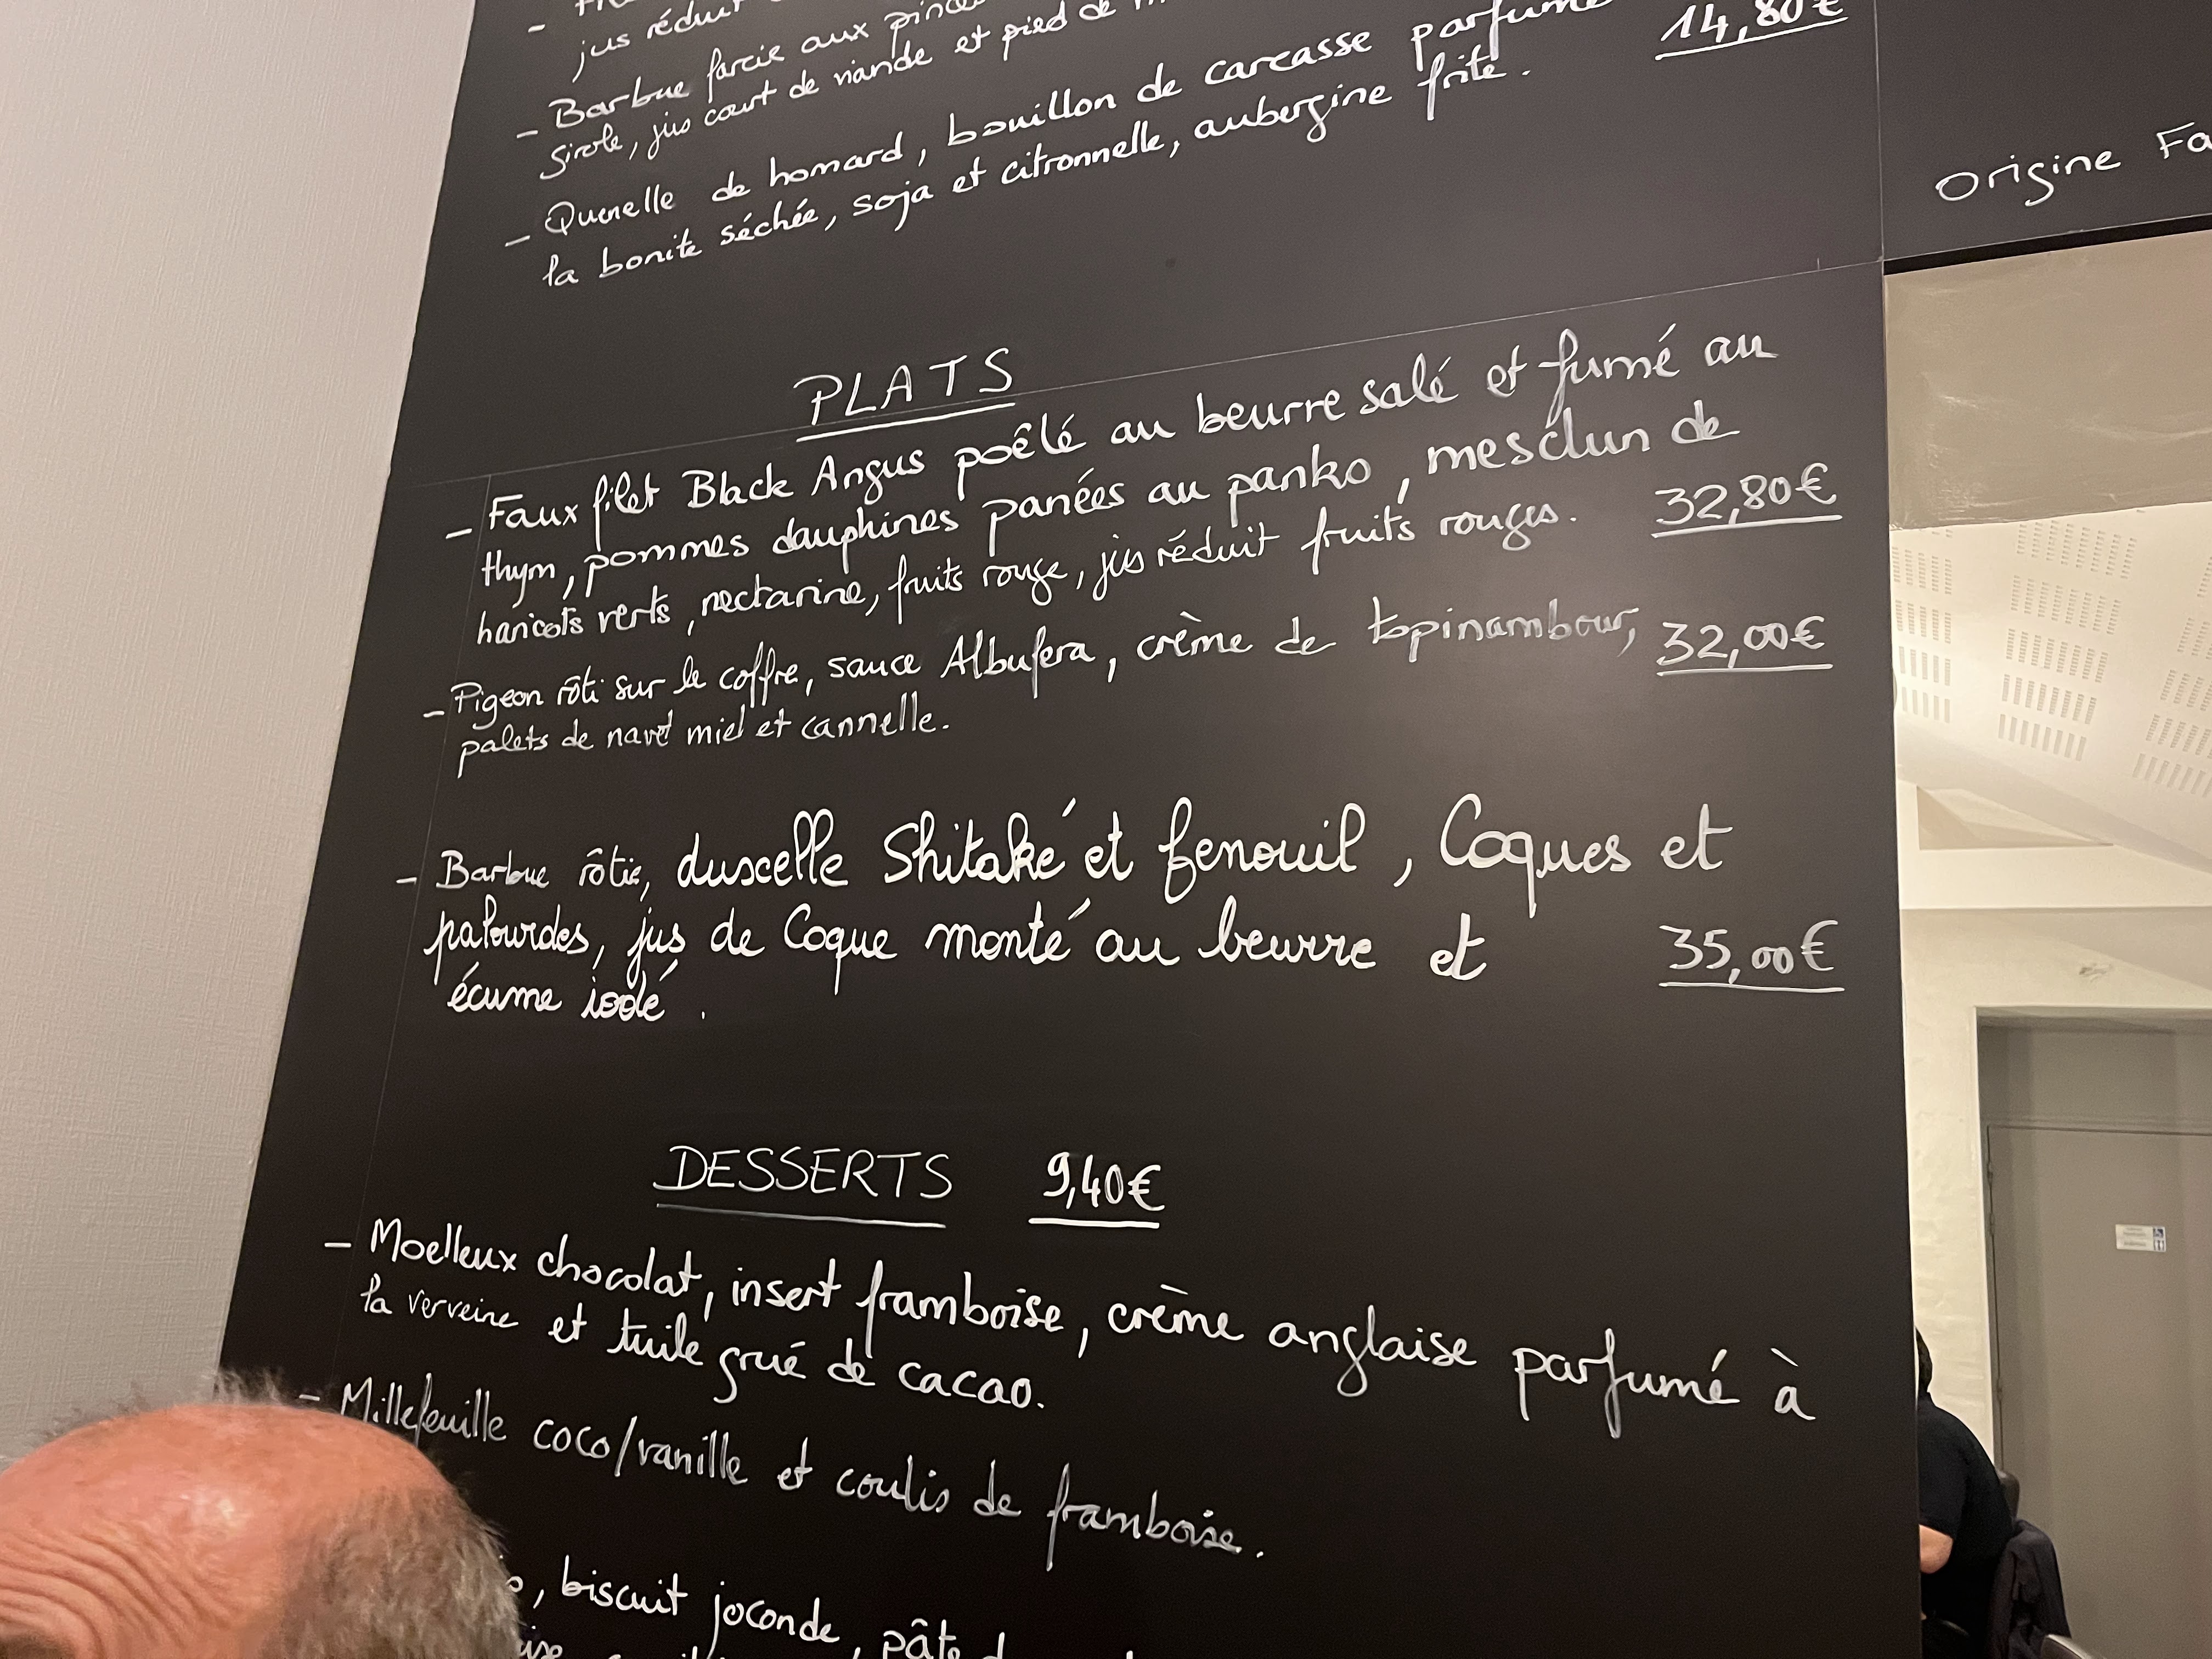 jus réduit
- Barbue farcie aux
girole, jus court de viande et pied de
- Quenelle de homard, bouillon de carcasse parfumé 14,80€
la bonite séchée, soja et citronnelle, aubergine frite.
Origine
PLATS
- Faux filet Black Angus poêlé au beurre salé et fumé au
thym, pommes dauphines panées au panko, mesclun de
haricots verts, nectarine, fruits rouge, jus réduit fruits rouges. 32,80€
- Pigeon rôti sur le coffre, sauce Albufera, crème de topinambour, 32,00€
palets de navet miel et cannelle.
- Barbue rôtie, duxcelle Shitaké et fenouil, Coques et
palourdes, jus de Coque monté au beurre et 35,00€
écume iodé.
DESSERTS 9,40€
- Moelleux chocolat, insert framboise, crème anglaise parfumé à
la verveine et tuile grué de cacao.
- Millefeuille coco/vanille et coulis de framboise.
, biscuit joconde, pâte